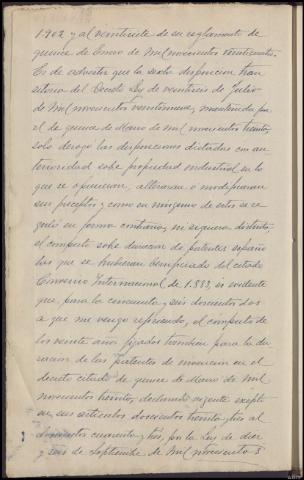 1902 y al veintisiete de su reglamento de
quince de Enero de Mil novecientos veinticuatro.
Es de advertir que la sexta disposicion tran
sitoria del Decreto Ley de veintiseis de Julio
de Mil novecientos veintinueve, mantenida por
el de quince de Marzo de mil novecientos treinta,
solo derogo las disposiciones dictadas con an
terioridad sobre propiedad industrial en lo
que se opusieran, alteraran ó modificaran
sus preceptos y como en ninguno de estos se re
guló en forma contraria, ni siquiera distinta,
el computo sobre duracion de patentes españo
las que se hubieran beneficiado del citado
Convenio Internacional de 1.883, es evidente
que, para la cincuenta y seis doscientos dos
a que me vengo refiriendo, el cómputo de
los veinte años fijados tambien para la du
racion de las patentes de invencion en el
decreto citado de quince de Marzo de Mil
novecientos treinta, declarado vigente excepto
en sus articulos doscientos treinta y tres al
doscientos cuarenta y tres, por la Ley de diez
y seis de Septiembre de Mil novecientos